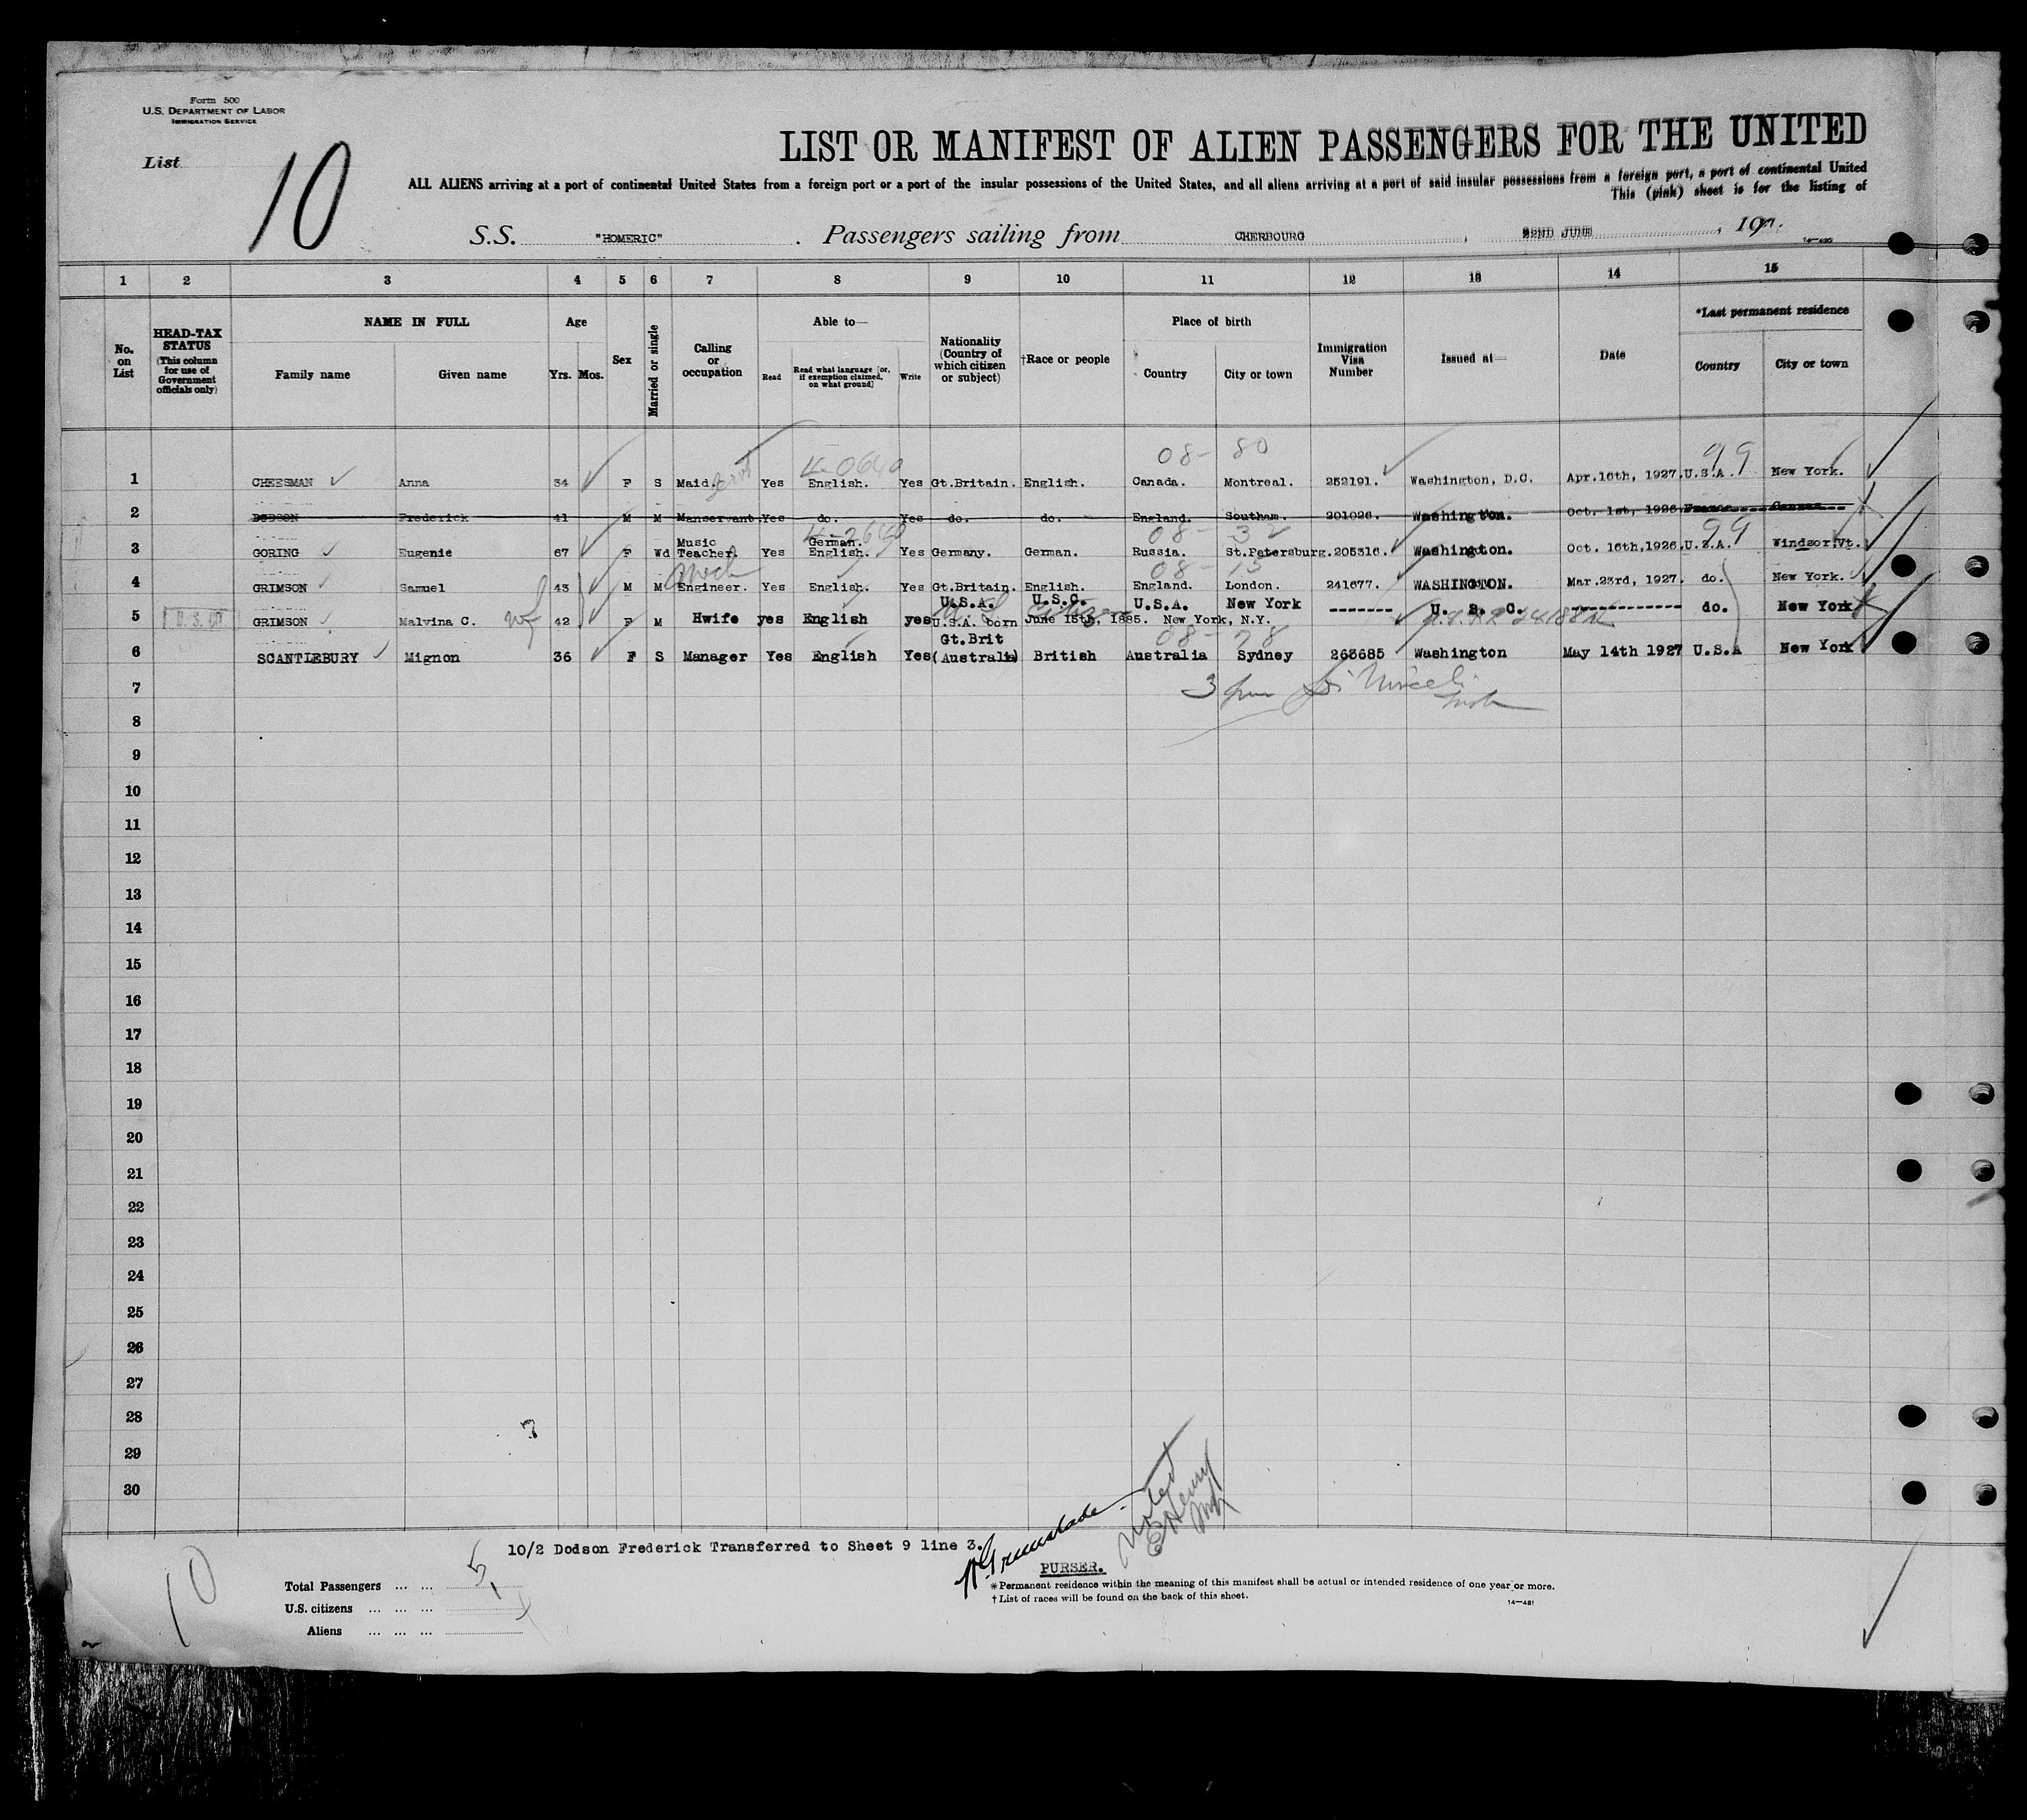 Form 500
U.S. DEPARTMENT OF LABOR
IMMIGRATION SERVICE
List 10
LIST OR MANIFEST OF ALIEN PASSENGERS FOR THE UNITED
ALL ALIENS arriving at a port of continental United States from a foreign port or a port of the insular possessions of the United States, and all aliens arriving at a port of said insular possessions from a foreign port, a port of continental United
This (pink) sheet is for the listing of
S.S. "HOMERIC" . Passengers sailing from CHERBOURG , 22ND JUNE , 1927.
14—480
1 2 3 4 5 6 7 8 9 10 11 12 13 14 15
No. on List
HEAD-TAX STATUS
(This column for use of Government officials only)
NAME IN FULL
Family name Given name
Age
Yrs. Mos.
Sex
Married or single
Calling or occupation
Able to—
Read Read what language [or, if exemption claimed, on what ground] Write
Nationality (Country of which citizen or subject)
†Race or people
Place of birth
Country City or town
Immigration Visa Number
Issued at—
Date
*Last permanent residence
Country City or town
08- 80 99
1 CHEESMAN Anna 34 F S Maid. Yes English. Yes Gt.Britain. English. Canada. Montreal. 252191. Washington, D.C. Apr.16th, 1927. U.S.A. New York.
2 DODSON Frederick 41 M M Manservant. Yes do. Yes do. do. England. Southam. 201026. Washington. Oct. 1st, 1926. France. Cannes.
08- 32 99
3 GORING Eugenie 67 F Wd Music Teacher. Yes German. English. Yes Germany. German. Russia. St.Petersburg. 205316. Washington. Oct. 16th,1926. U.S.A. Windsor Vt.
08- 15
4 GRIMSON Samuel 43 M M Engineer. Yes English. Yes Gt.Britain. English. England. London. 241677. WASHINGTON. Mar.23rd, 1927. do. New York.
U.S.A. U.S.C. U.S.A. New York ------- U. S. C. ------------ do. New York
5 GRIMSON Malvina C. 42 F M Hwife yes English yes U.S.A. born June 15th, 1885. New York, N.Y.
08- 78
6 SCANTLEBURY Mignon 36 F S Manager Yes English Yes Gt.Brit (Australia) British Australia Sydney 263685 Washington May 14th 1927 U.S.A New York
7
8
9
10
11
12
13
14
15
16
17
18
19
20
21
22
23
24
25
26
27
28
29
30
10/2 Dodson Frederick Transferred to Sheet 9 line 3.
PURSER.
10
Total Passengers ... ... 5
U.S. citizens ... ... ...
Aliens ... ... ...
*Permanent residence within the meaning of this manifest shall be actual or intended residence of one year or more.
†List of races will be found on the back of this sheet.
14—481